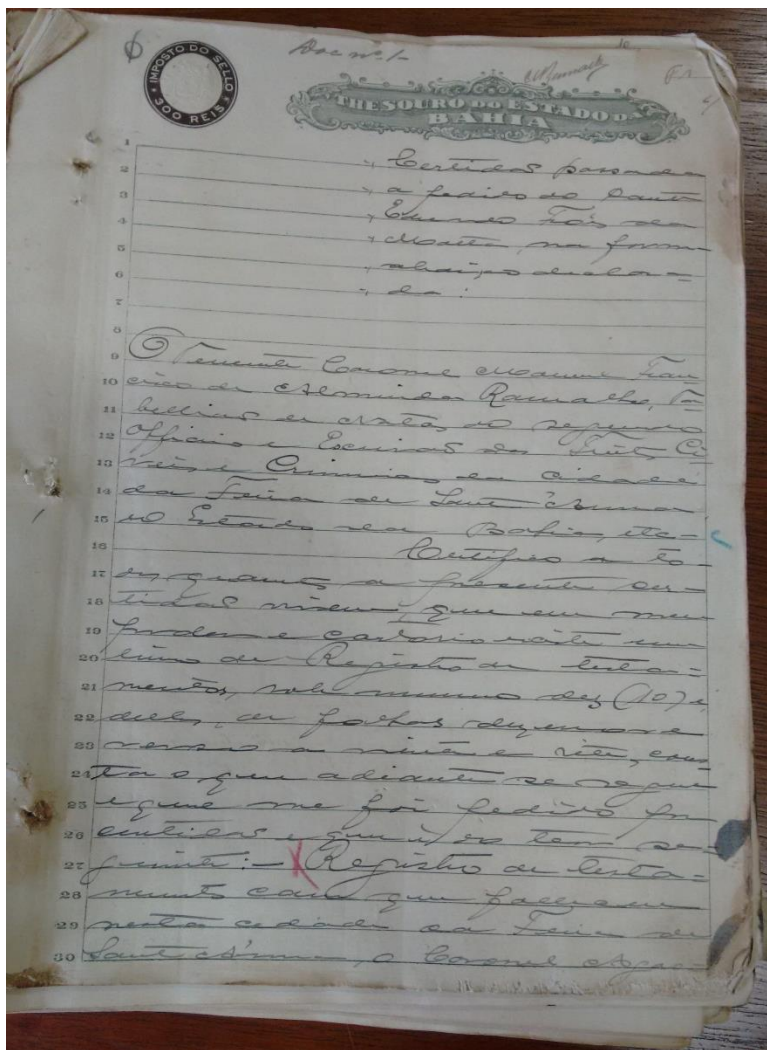 Doc nº 1-
IMPOSTO DO SELLO
300 REIS
THESOURO DO ESTADO DA
BAHIA
1
2 Certidão passada
3 a pedido do
4
5 na forma
6 abaixo declara-
7 da:
8
9 O Tenente Coronel Manuel Fran-
10 cisco de Almeida Ramalho, Ta-
11 bellião de Notas do segundo
12 Officio e Escrivão dos Feitos Ci-
13 veis e Crimes da cidade
14 da Feira de Sant'Anna
15 do Estado da Bahia, etc-
16 Certifico a to-
17 dos quantos a presente cer-
18 tidão virem, que em meu
19 poder e cartorio existe um
20 livro de Registro de testa-
21 mentos, sob numero dez (10) e
22 delle, de folhas dezenove
23 verso a vinte e sete, cons-
24 ta o que adiante se segue
25 e que me foi pedido por
26 certidão e que é do teor se-
27 guinte:- Registro de testa-
28 mento com que falleceu
29 nesta cidade da Feira de
30 Sant'Anna, o Coronel